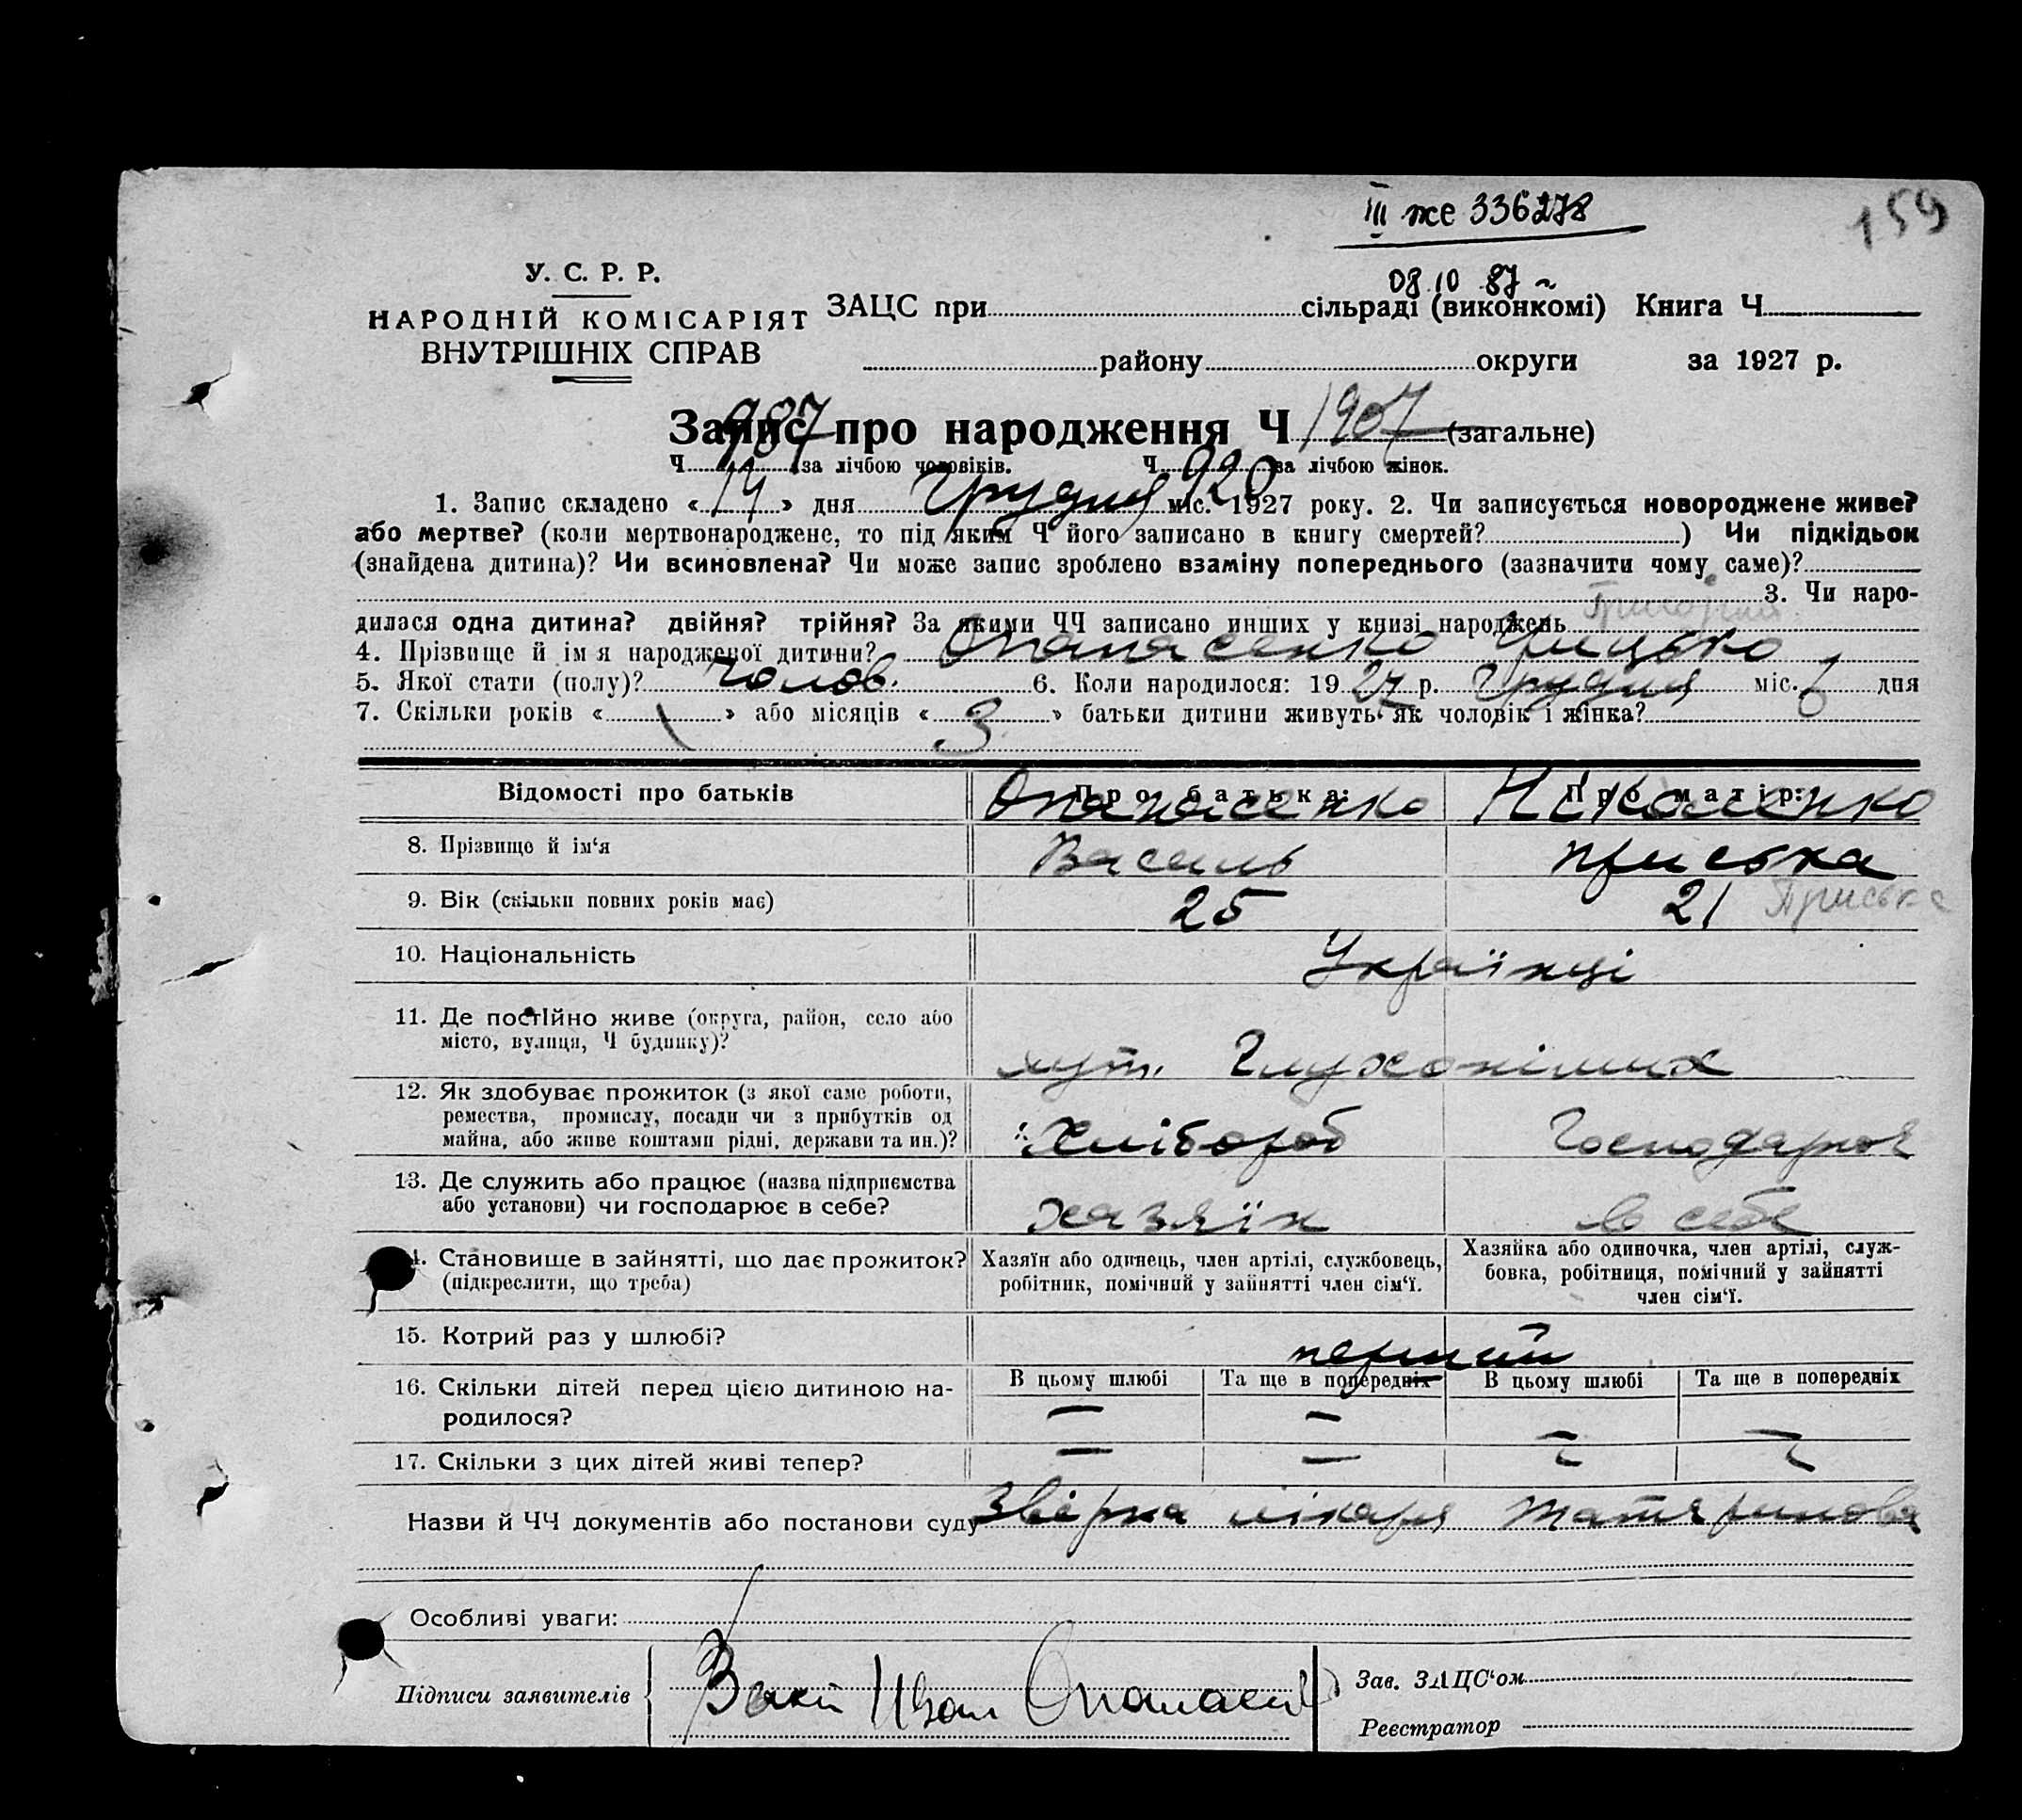 III же 336278
159
08.10.87
У. С. Р. Р.
НАРОДНІЙ КОМІСАРІЯТ
ВНУТРІШНІХ СПРАВ
ЗАЦС при сільраді (виконкомі) Книга Ч
району округи за 1927 р.
Запис про народження Ч 1907 (загальне)
Ч 987 за лічбою чоловіків. Ч 920 за лічбою жінок.
1. Запис складено «14» дня Грудня міс. 1927 року. 2. Чи записується новороджене живе?
або мертве? (коли мертвонароджене, то під яким Ч його записано в книгу смертей? ) Чи підкідьок
(знайдена дитина)? Чи всиновлена? Чи може запис зроблено взаміну попереднього (зазначити чому саме)?
3. Чи наро-
Григорий
дилася одна дитина? двійня? трійня? За якими ЧЧ записано инших у книзі народжень
4. Прізвище й ім я народженої дитини? Опанасенко Грицько
5. Якої стати (полу)? чолов. 6. Коли народилося: 1927 р. Грудня міс. 6 дня
7. Скільки років « \ » або місяців « 3 » батьки дитини живуть як чоловік і жінка?
Відомості про батьків Про батька: Про матір:
Опанасенко Ніколенко
8. Прізвище й ім‘я Василь Приська
9. Вік (скільки повних років має) 25 21 Приська
10. Національність Українці
11. Де постійно живе (округа, район, село або
місто, вулиця, Ч будинку)? хут. Глухонімих
12. Як здобуває прожиток (з якої саме роботи,
ремества, промислу, посади чи з прибутків од
майна, або живе коштами рідні, держави та ин.)? Хлібороб Господарює
13. Де служить або працює (назва підприємства
або установи) чи господарює в себе? хазяїн в себе
4. Становище в зайнятті, що дає прожиток? Хазяїн або одинець, член артілі, службовець, Хазяйка або одиночка, член артілі, служ-
(підкреслити, що треба) робітник, помічний у зайнятті член сім‘ї. бовка, робітниця, помічний у зайнятті
член сім‘ї.
15. Котрий раз у шлюбі? перший
16. Скільки дітей перед цією дитиною на- В цьому шлюбі Та ще в попередніх В цьому шлюбі Та ще в попередніх
родилося? — — — —
17. Скільки з цих дітей живі тепер? — — — —
Назви й ЧЧ документів або постанови суду Звірка лікаря
Особливі уваги:
Підписи заявителів Иван Зав. ЗАЦС‘ом
Реєстратор